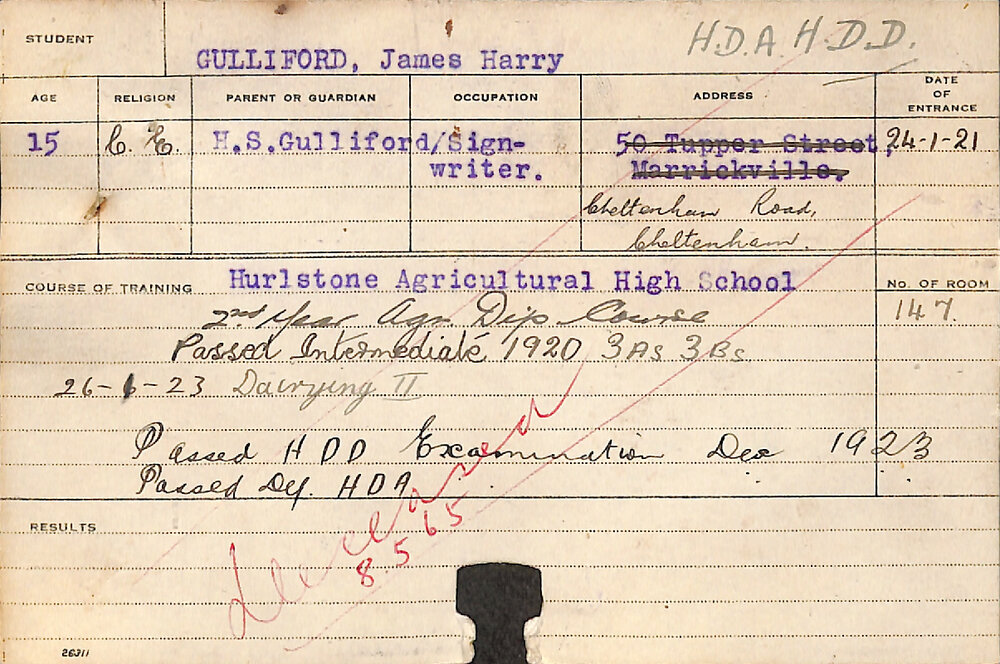 STUDENT
GULLIFORD, James Harry
H.D.A. H.D.D.
AGE
RELIGION
PARENT OR GUARDIAN
OCCUPATION
ADDRESS
DATE
OF
ENTRANCE
15
C. E.
H.S.Gulliford/Sign-
writer.
50 Tupper Street,
Marrickville.
24-1-21
Cheltenham Road,
Cheltenham.
COURSE OF TRAINING
Hurlstone Agricultural High School
No. OF ROOM
2nd Year Agr. Dip Course
147.
Passed Intermediate 1920 3As 3Bs
26-6-23 Dairying II
Passed HDD Examination Dec 1923
Passed Def. HDA
RESULTS
Deceased
8.5.65
26311